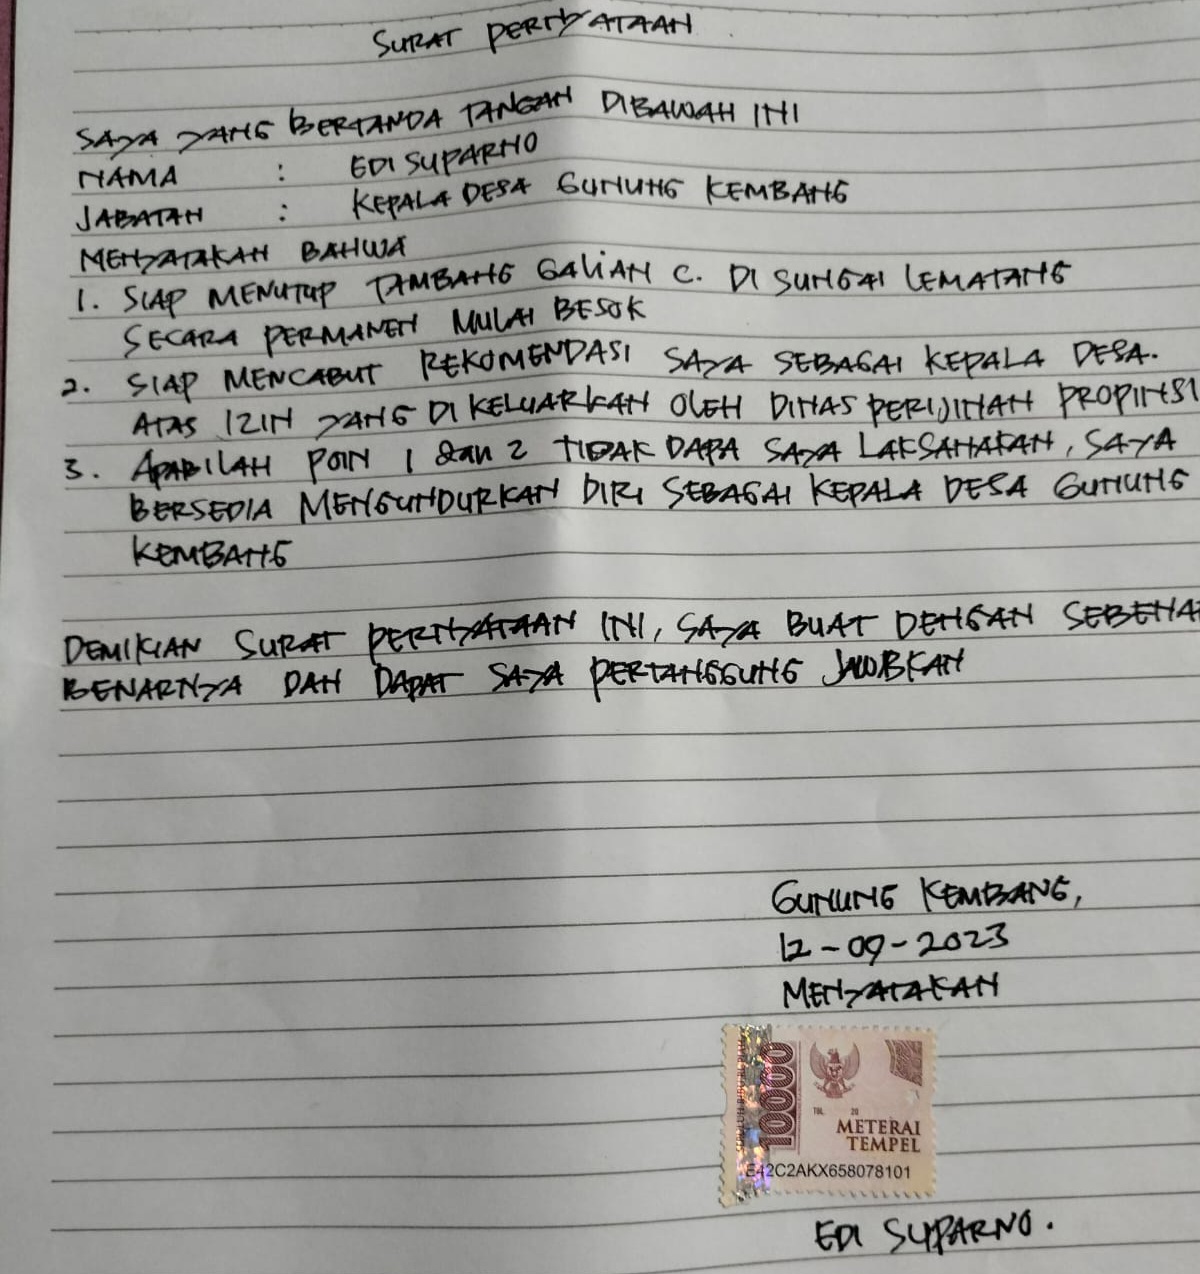 SURAT PERNYATAAN
SAYA YANG BERTANDA TANGAN DIBAWAH INI
NAMA : EDI SUPARNO
JABATAN : KEPALA DESA GUNUNG KEMBANG
MENYATAKAN BAHWA
1. SIAP MENUTUP TAMBANG GALIAN C. DI SUNGAI LEMATANG
SECARA PERMANEN MULAI BESOK
2. SIAP MENCABUT REKOMENDASI SAYA SEBAGAI KEPALA DESA.
ATAS IZIN YANG DI KELUARKAN OLEH DINAS PERIJINAN PROPINSI
3. APABILAH POIN 1 dan 2 TIDAK DAPA SAYA LAKSANAKAN, SAYA
BERSEDIA MENGUNDURKAN DIRI SEBAGAI KEPALA DESA GUNUNG
KEMBANG
DEMIKIAN SURAT PERNYATAAN INI, SAYA BUAT DENGAN SEBENAR
BENARNYA DAN DAPAT SAYA PERTANGGUNG JAWABKAN
GUNUNG KEMBANG,
12-09-2023
MENYATAKAN
10000
TGL. 20
METERAI
TEMPEL
E42C2AKX658078101
EDI SUPARNO.